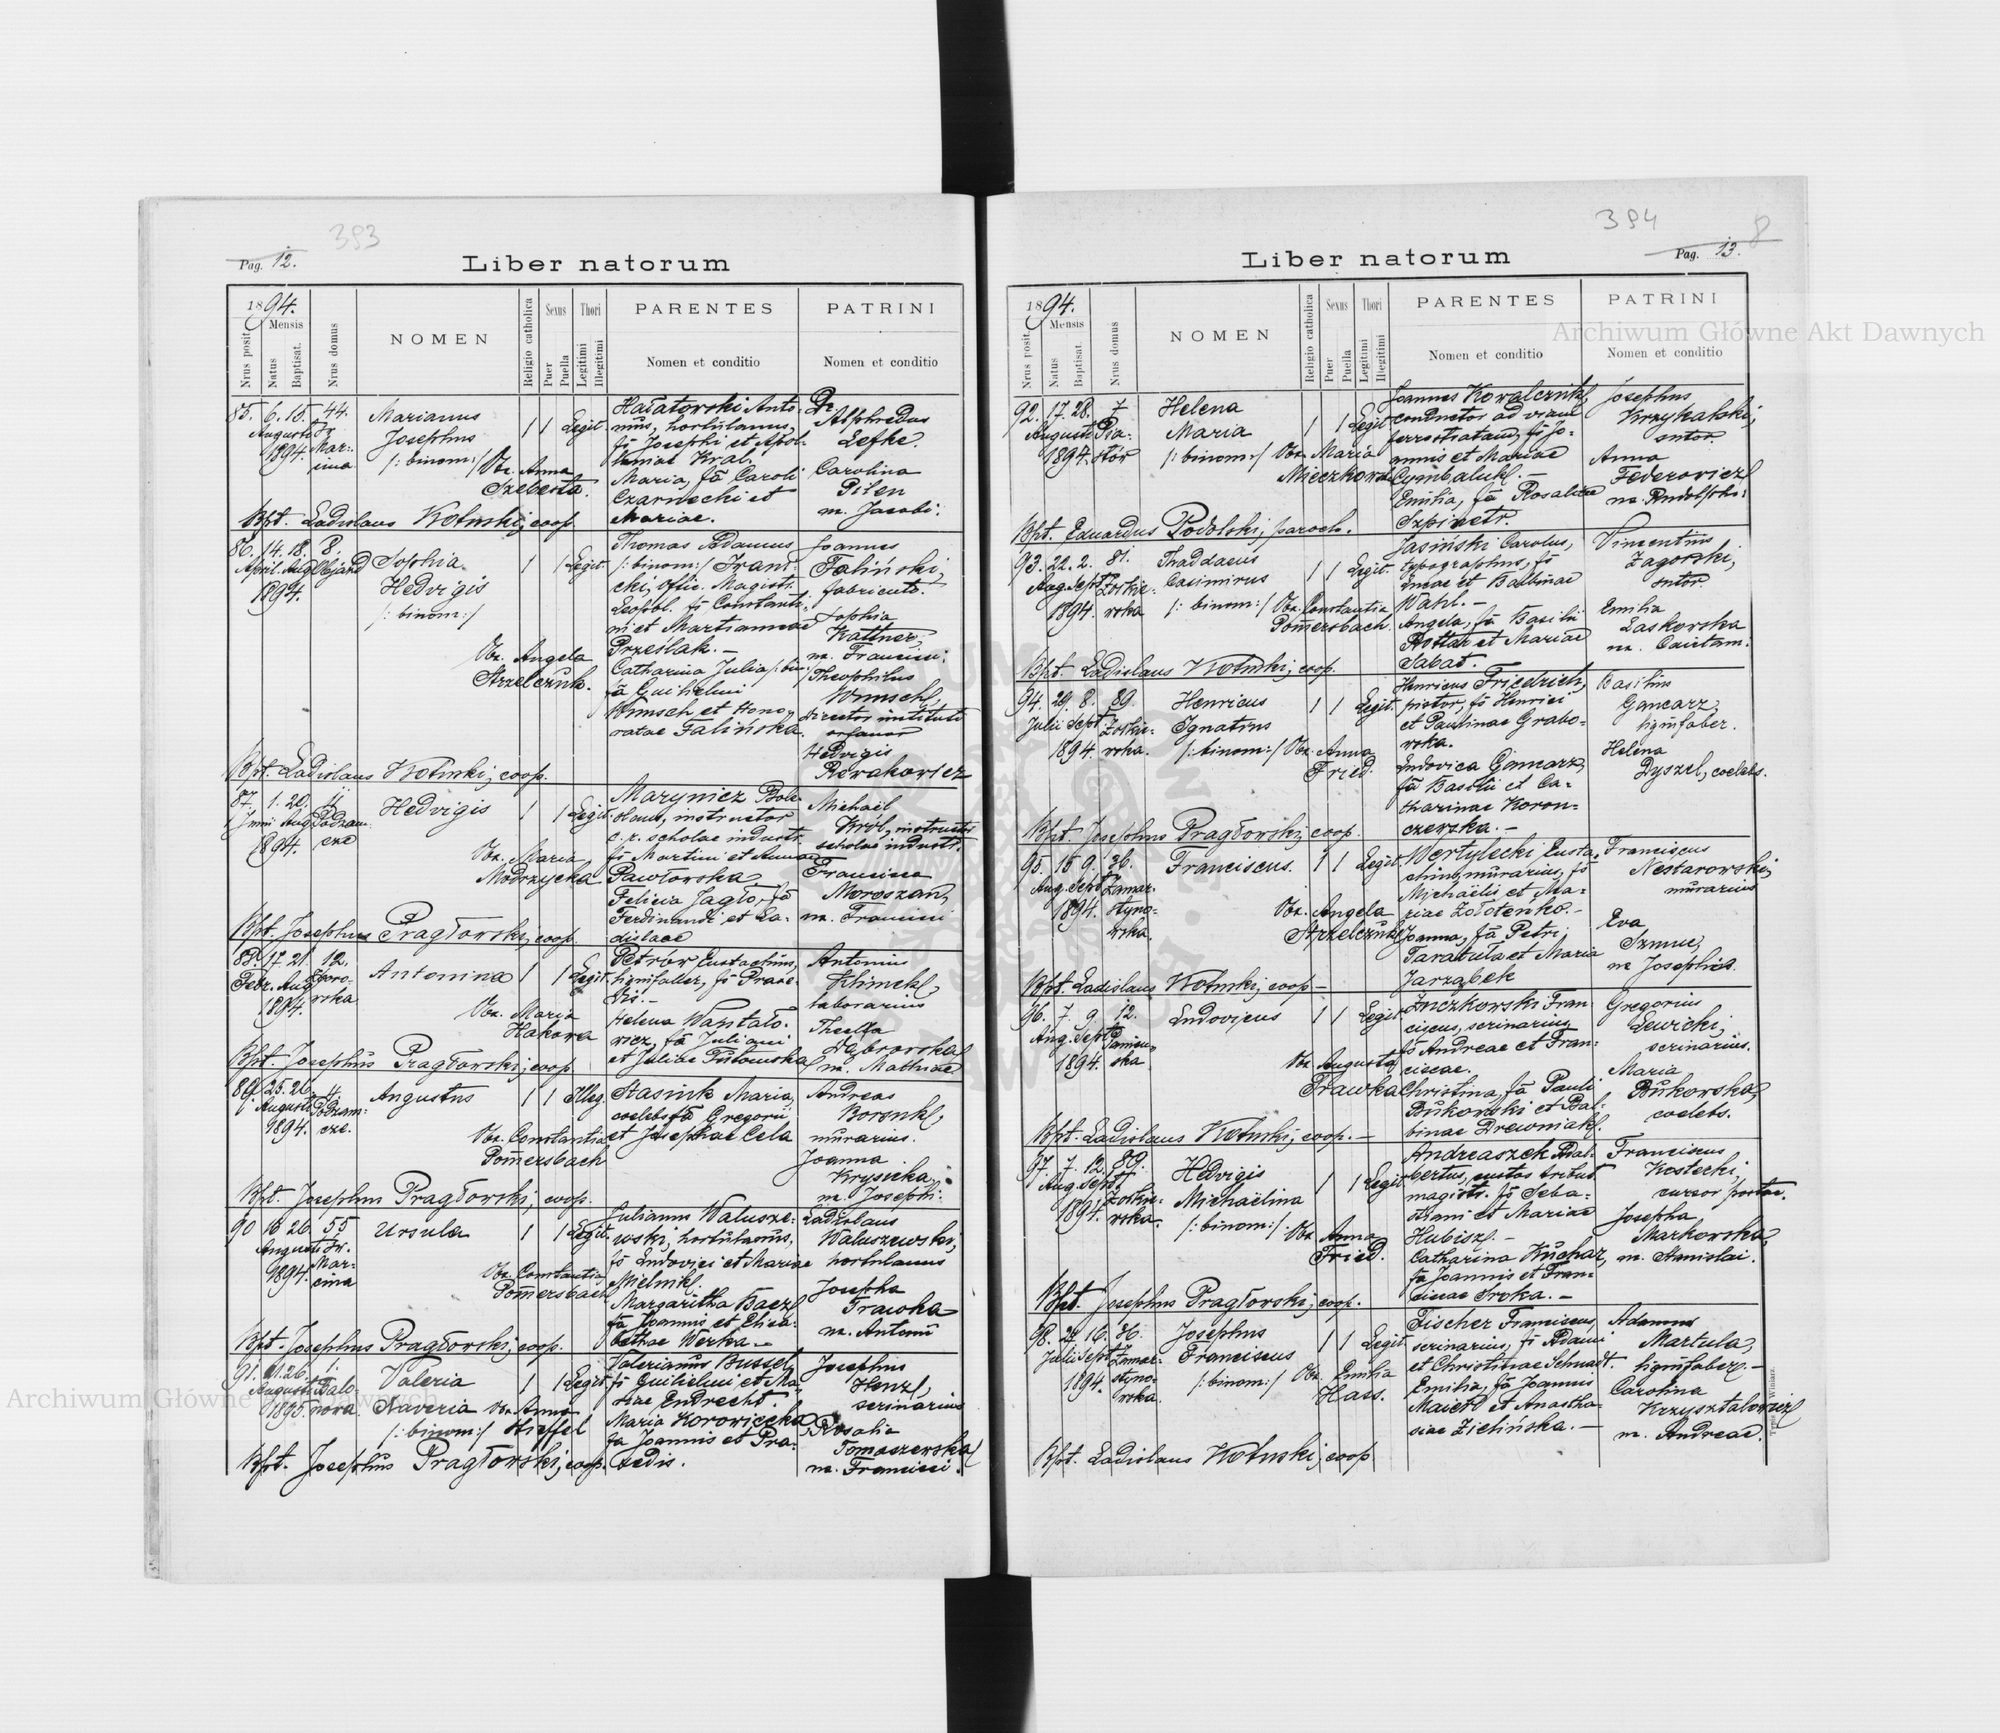 393
Pag. 12.
Liber natorum
1894.
Nrus posit.
Mensis
Natus
Baptisat.
Nrus domus
NOMEN
Religio catholica
Sexus
Puer
Puella
Thori
Legitimi
Illegitimi
PARENTES
Nomen et conditio
PATRINI
Nomen et conditio
85. 6. 15. 44.
Augusti Sr.
1894. Mar-
cina
Marianus
Josephus
/: binom:/ Obx. Anna
Szebesta.
1 1 Legit.
Hałatorski Anto-
nius, hortulanus,
fs Josephi et Apol-
loniae Kral.
Maria, fa Caroli
Czarnecki et
Mariae.
Dr.
Alphredus
Lefke.
Carolina
Pilen
m. Jacobi.
Bpt. Ladislaus Kotuski, coop.
86. 14. 18. 8.
April. Aug. Objazd
1894.
Sophia
Hedvigis
/: binom:/
Obx. Angela
Strzelczuk.
1 1 Legit.
Thomas Adamus
/: binom:/ Irani-
cki, offic. Magistr.
Leopol. fs Constanti-
ni et Martiannae
Prześlak. –
Catharina Julia /: bin:/
fa Guilhelmi
Wunsch et Hono-
ratae Falińska.
Joannes
Faliński,
fabricato.
Sophia
Kattner,
m. Francisci.
Theophilus
Wunschl,
director instituti
orfanor
Hedvigis
Rorakowicz
Bpt. Ladislaus Kotuski, coop.
87. 1. 20. 4
Junii Aug. Podzam-
1894. cze
Hedvigis
Obx. Maria
Modrzycka
1 1 Legit.
Marynicz Bole-
slaus, instructor
c. r. scholae industr.
fs Martini et Annae
Pawłorska
Felicia Jagło, fa
Ferdinandi et La-
dislaae
Michaël
Król, instructor
scholae industr.
Francisca
Moroszan,
m. Francisci
Bpt. Josephus Pragłorski, coop.
88. 17. 21. 12.
Febr. Aug. Zboro-
1894. wska
Antonina
Obx. Maria
Hakova
1 1 Legit.
Petrov Eustachius,
lignifaber, fs Praxe-
dis. –
Helena Wantało-
wicz, fa Juliani
et Juliae Tutomska
Antonius
Klimekl,
laborarius
Theela
Dąbrovska
m. Mathiae
Bpt. Josephus Pragłorski, coop.
89. 25. 26. 4.
Augusti Podzam-
1894. cze.
Augustus
Obx. Constantia
Pom̄ersbach
1 1 Illeg.
Stasiuk Maria,
coelebs fa Gregorii
et Josephae Cela
Andreas
Borsukl,
murarius.
Joanna
Krysicka,
m. Josephi.
Bpt. Josephus Pragłorski, coop.
90 16 26 55
Augusti Sr.
1894. Mar-
cina
Ursula
Obx. Constantia
Pom̄ersbach
1 1 Legit.
Julianus Walusze-
wski, hortulanus,
fs Ludovici et Mariae
Mielnikl.
Margaritha Baezl
fa Joannis et Elisa-
bethae Werka. –
Ladislaus
Waluszewski,
hortulanus
Josepha
Trawka
m. Antonii
Bpt. Josephus Pragłorski, coop.
91. 21. 26. 1.
Augusti Balo-
1895. nova
Valeria
Xaveria Obx. Anna
/: binom:/ Hieffel
1 1 Legit.
Valerianus Bussel,
fs Guilielmi et Ma-
riae Endrecht.
Maria Korowiecka
fa Joannis et Pra-
xedis.
Josephus
Henzl,
scrinarius
Rosalia
Tomaszewska
m. Francisci.
Bpt. Josephus Pragłorski, coop.
394
8
Pag. 13.
Liber natorum
1894.
Nrus posit.
Mensis
Natus
Baptisat.
Nrus domus
NOMEN
Religio catholica
Sexus
Puer
Puella
Thori
Legitimi
Illegitimi
PARENTES
Nomen et conditio
PATRINI
Nomen et conditio
92. 17. 28. 7
Augusti Pia-
1894. stów
Helena
Maria
/: binom:/ Obx. Maria
Mieczkowska
1 1 Legit.
Joannes Kovalczukl,
conductor ad viam
ferrostratam, fs Jo-
annis et Mariae
Cymbalukl. –
Emilia, fa Rosaliae
Szpinetr.
Josephus
Krzykalski,
sutor.
Anna
Federowiczl
m. Rudolphi.
Bpt. Eduardus Podolski, paroch.
93. 22. 2. 81.
Aug. Sept. Żołkie-
1894. wska
Thaddaeus
Casimirus
/: binom:/ Obx. Constantia
Pom̄ersbach.
1 1 Legit.
Jasiński Carolus,
typographus, fs
Lucae et Balbinae
Wahl. –
Angela, fa Basilii
Hottar et Mariae
Sabat.
Vincentius
Zagorski,
sutor.
Emilia
Laskorska
m. Caietani.
Bpt. Ladislaus Kotuski, coop.
94. 29. 8. 89.
Julii Sept. Żołkie-
1894 wska.
Henricus
Ignatius
/: binom:/ Obx. Anna
Fried.
1 1 Legit.
Henricus Friedrich,
pictor, fs Henrici
et Paulinae Grabo-
wska.
Ludovica Gancarz,
fa Basilii et Ca-
tharinae Koron-
czerska. –
Basilius
Gancarz,
lignifaber.
Helena
Dyszel, coelebs.
Bpt. Josephus Pragłorski, coop.
95. 15 9. 26.
Aug. Sept. Zamar-
1894. styno-
wska.
Franciscus.
Obx. Angela
Strzelczuk
1 1 Legit.
Wertylecki Eusta-
chius, murarius, fs
Michaëlis et Ma-
riae Zołotenko. –
Joanna, fa Petri
Taratuła et Maria
Jarząbek
Franciscus
Nestarovski,
murarius
Eva
Szmuc,
m Josephi.
Bpt. Ladislaus Kotuski, coop –
96. 7. 9. 12.
Aug. Sept. Panień-
1894. ska
Ludovicus
Obx. Augusta
Trawka
1 1 Legit.
Zuczkowski Fran-
ciscus, scrinarius,
fs Andreae et Fran-
ciscae.
Christina, fa Pauli
Bukowski et Bal-
binae Drewniakl.
Gregorius
Lewicki,
scrinarius.
Maria
Bukowska,
coelebs.
Bpt. Ladislaus Kotuski, coop. –
97. 7. 12. 89.
Aug. Sept. Żołkie-
1894. wska.
Hedvigis
Michaëlina
/: binom:/ Obx. Anna
Fried.
1 1 Legit.
Andreaszek Adal-
bertus, custos tribut.
magistr. fs Seba-
stiani et Mariae
Hubiszl. –
Catharina Kuchar,
fa Joannis et Fran-
ciscae Sroka. –
Franciscus
Kostecki,
cursor postae.
Josepha
Markowska,
m. Stanislai.
Bpt. Josephus Pragłorski, coop.
98. 28 16. 36.
Julii Sept. Zamar-
1894. styno-
wska.
Josephus
Franciscus
/: binom:/ Obx. Emilia
Hass.
1 1 Legit.
Fischer Franciscus,
scrinarius, fs Adami
et Christinae Schmidt.
Emilia, fa Joannis
Maierl et Anastha-
siae Zielińska. –
Adamus
Martula,
lignifaber. –
Carolina
Krzysztalowiczl
m. Andreae.
Bpt. Ladislaus Kotuski, coop
Archiwum Główne Akt Dawnych
Archiwum Główne Akt Dawnych